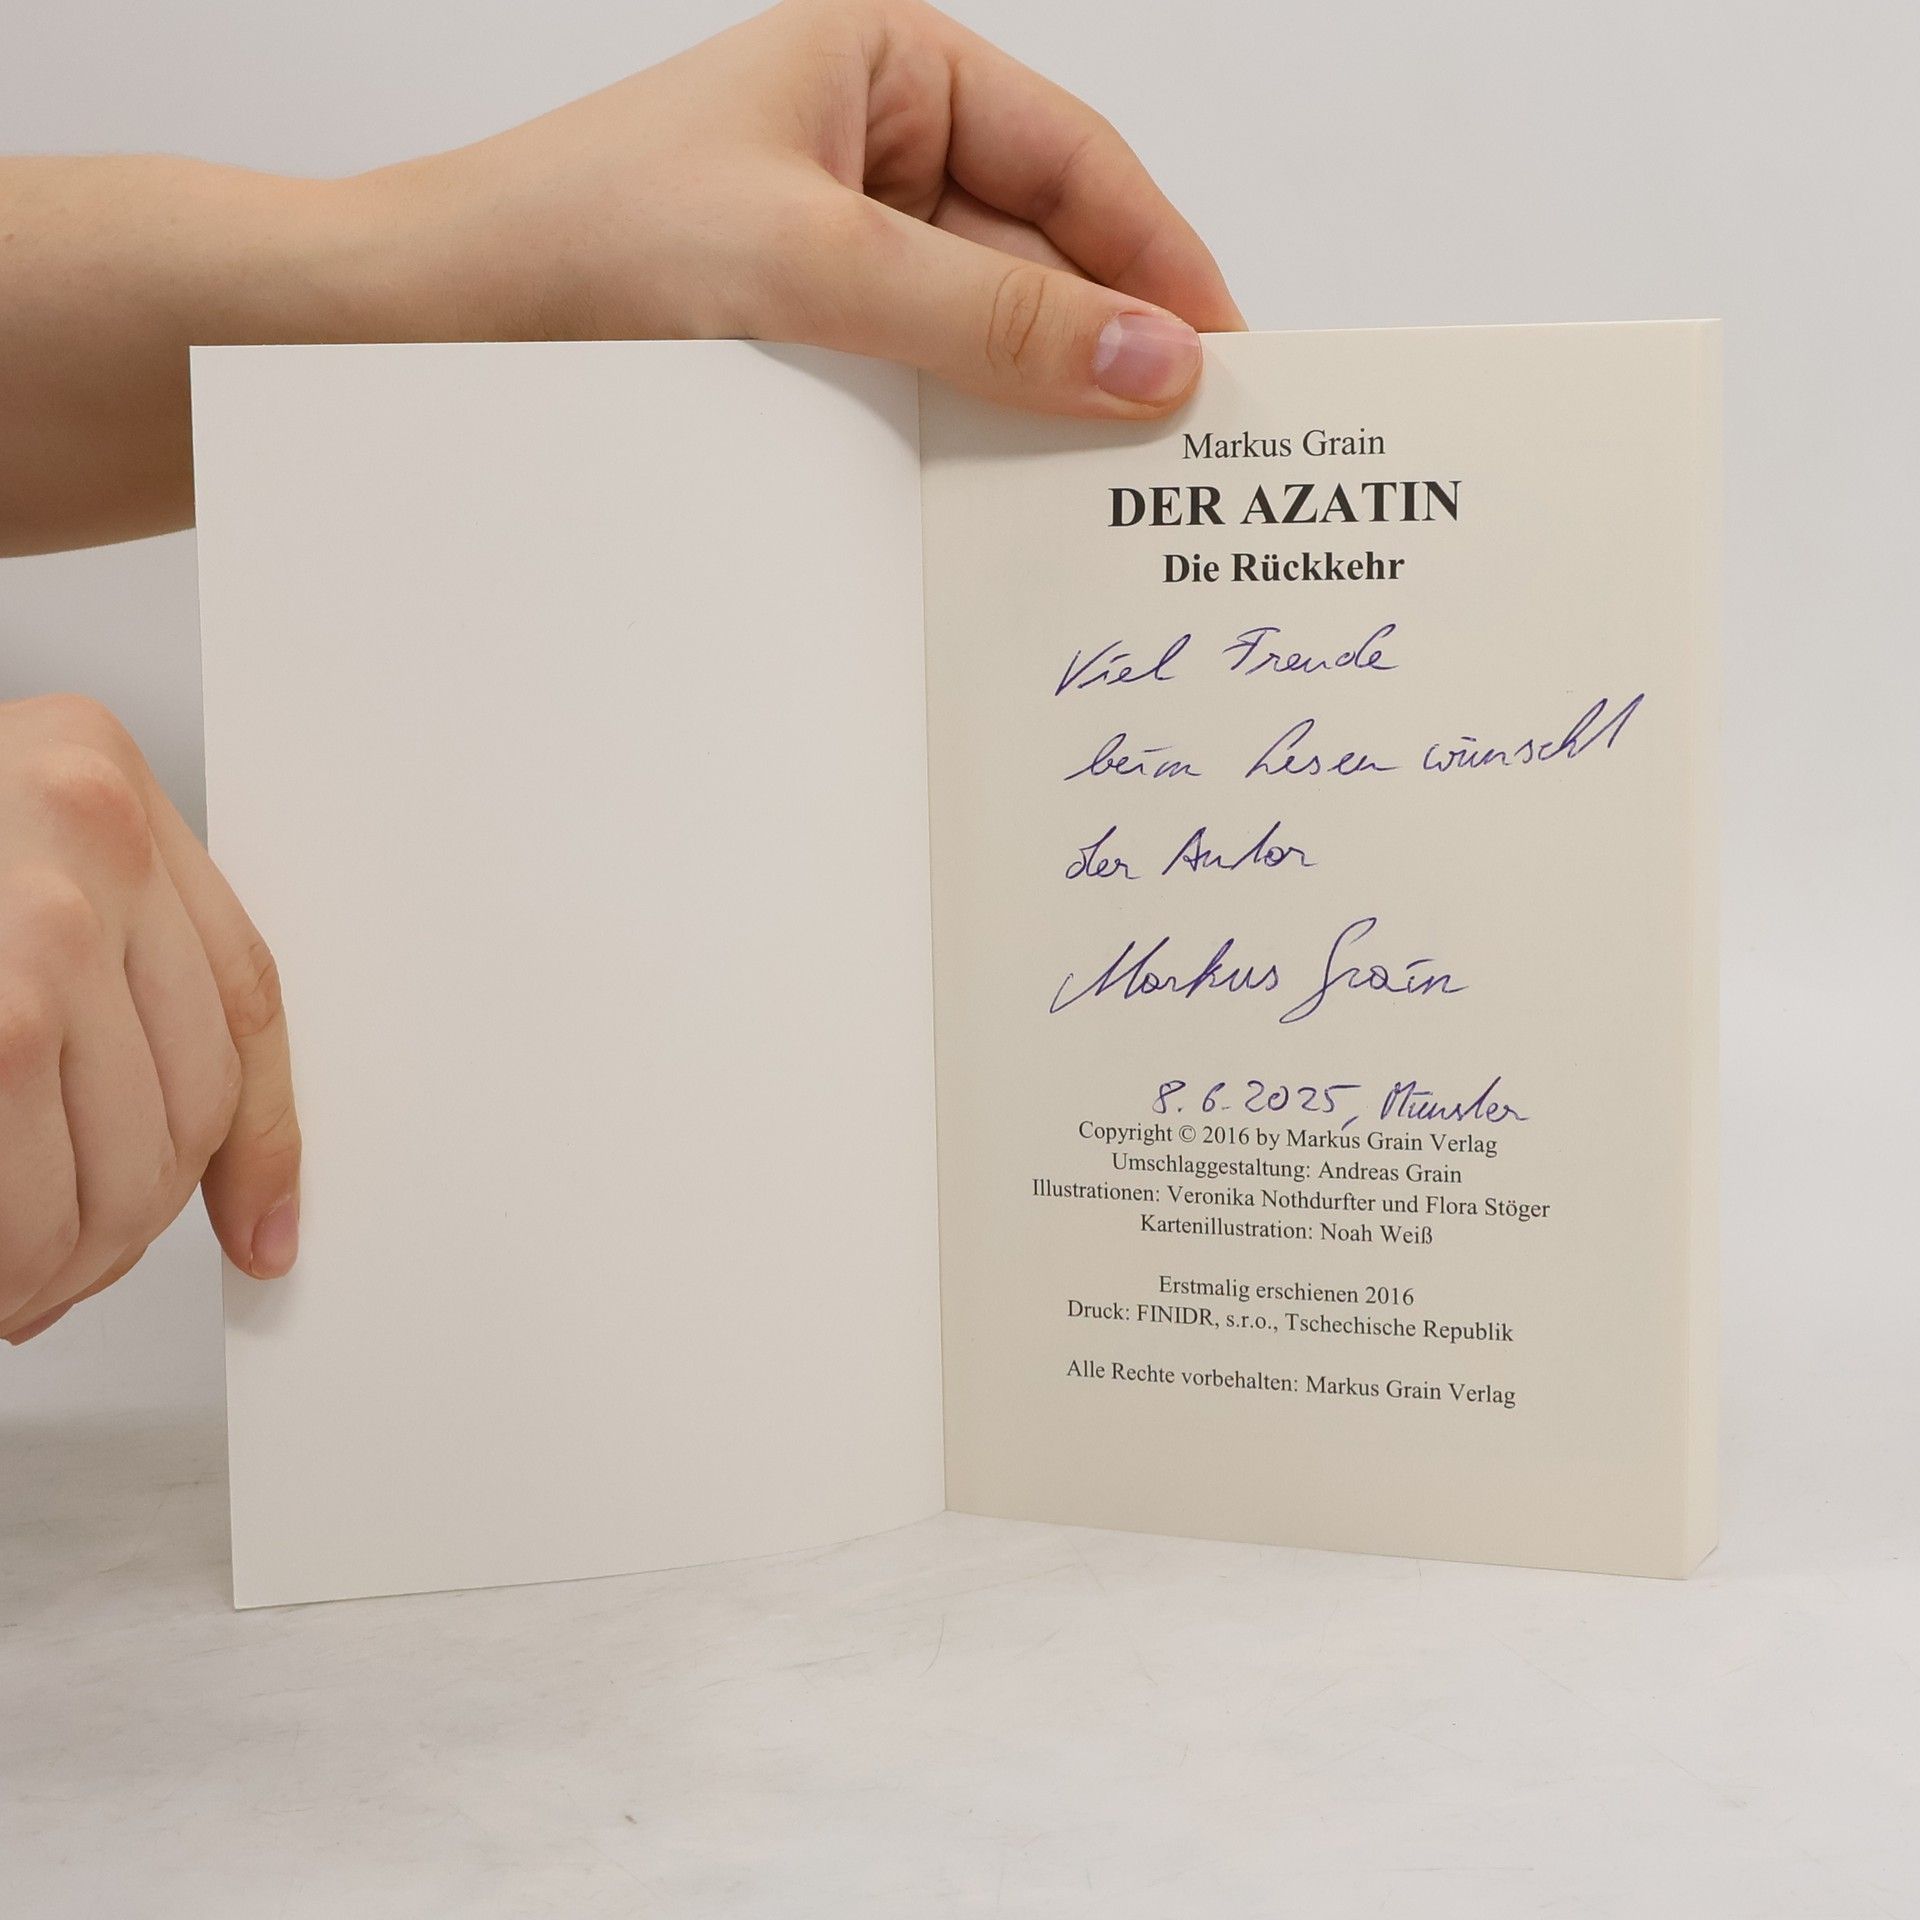 Markus Grain
DER AZATIN
Die Rückkehr
Viel Freude
beim Lesen wünscht
der Autor
Markus Grain
8.6.2025, Münster
Copyright © 2016 by Markus Grain Verlag
Umschlaggestaltung: Andreas Grain
Illustrationen: Veronika Nothdurfter und Flora Stöger
Kartenillustration: Noah Weiß
Erstmalig erschienen 2016
Druck: FINIDR, s.r.o., Tschechische Republik
Alle Rechte vorbehalten: Markus Grain Verlag